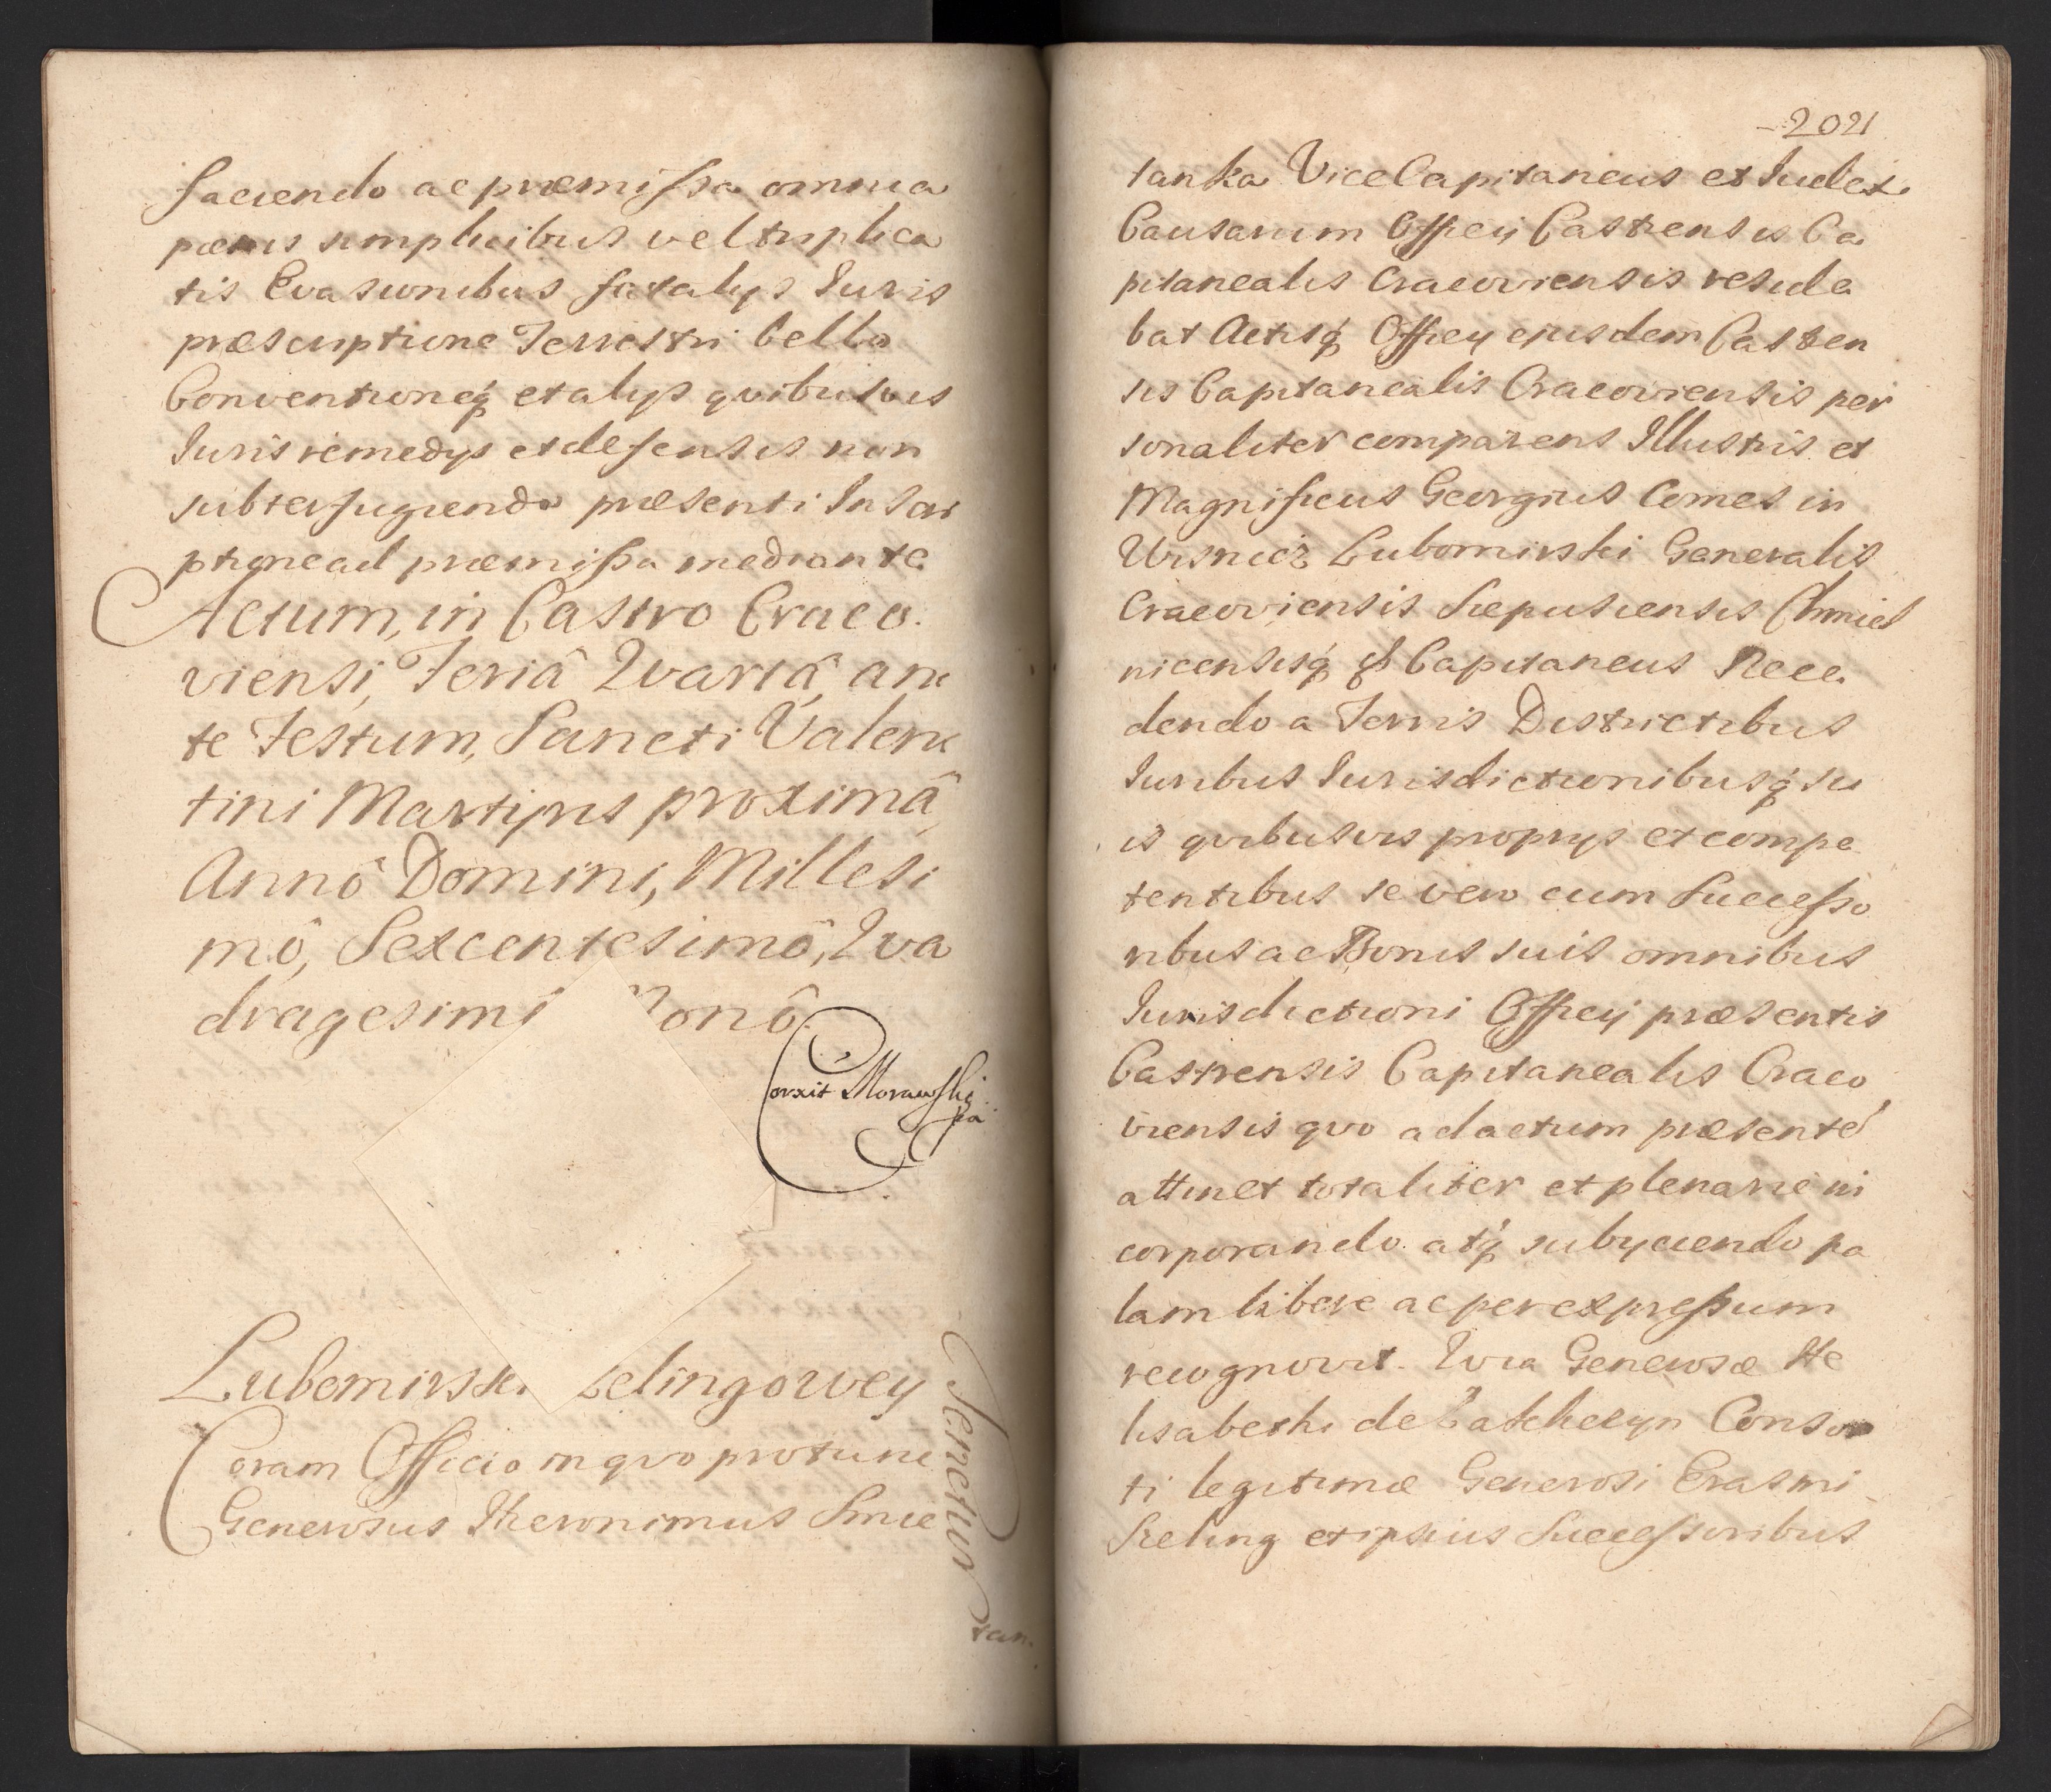 faciendo ac præmissa omnia
pœnis simplicibus vel triplica
tis Evasionibus fatalys Iuris
præscriptione Terrestri bello
Conventioneq́ et alys quibusvis
Iuris remedys et defensis non
subterfugiendo præsenti Inscri
ptione ad præmissa mediante
Actum, in Castro Craco.
viensi, Feriâ Qvartâ, an
te Festum, Sancti Valen
tini Martyris proximâ,
Annô Domini, Millesi
mô, Sexcentesimô, Qva
dragesimi Nonô.
Corexit Morawskj
pa
Lubomirski Zelingowey
Coram Officio in qvo protunc
Generosus Hieronimus Smie
Senctur
tan.
2021
tanka ViceCapitaneus et Iudex
Causarum Officÿ Castrensis Ca
pitanealis Cracoviensis reside
bat Actisq́ Officÿ ejusdem Castren
sis Capitanealis Cracoviensis per
sonaliter comparens Illustris et
Magnificus Georgius Comes in
Wisnicz Lubomirski Generalis
Cracoviensis Scepusiensis Chmiel
nicensisq́ Capitaneus Rece
dendo a Terris Districtibus
Iuribus Iurisdictionibusq́ su
is qvibusvis proprys et compe
tentibus se vero cum Successo
ribus ac Bonis suis omnibus
Iurisdictioni Officÿ præsentis
Castrensis Capitanealis Craco
viensis qvo ad actum præsente
attinet totaliter et plenarie in
corporando atq́ subyciendo pa
lam libere ac per expressum
recognovit. Qvia Generosæ He
lisabethi de Catchelyn Consor
ti legitimæ Generosi Erasmi
Sceling et ipsius Successoribus